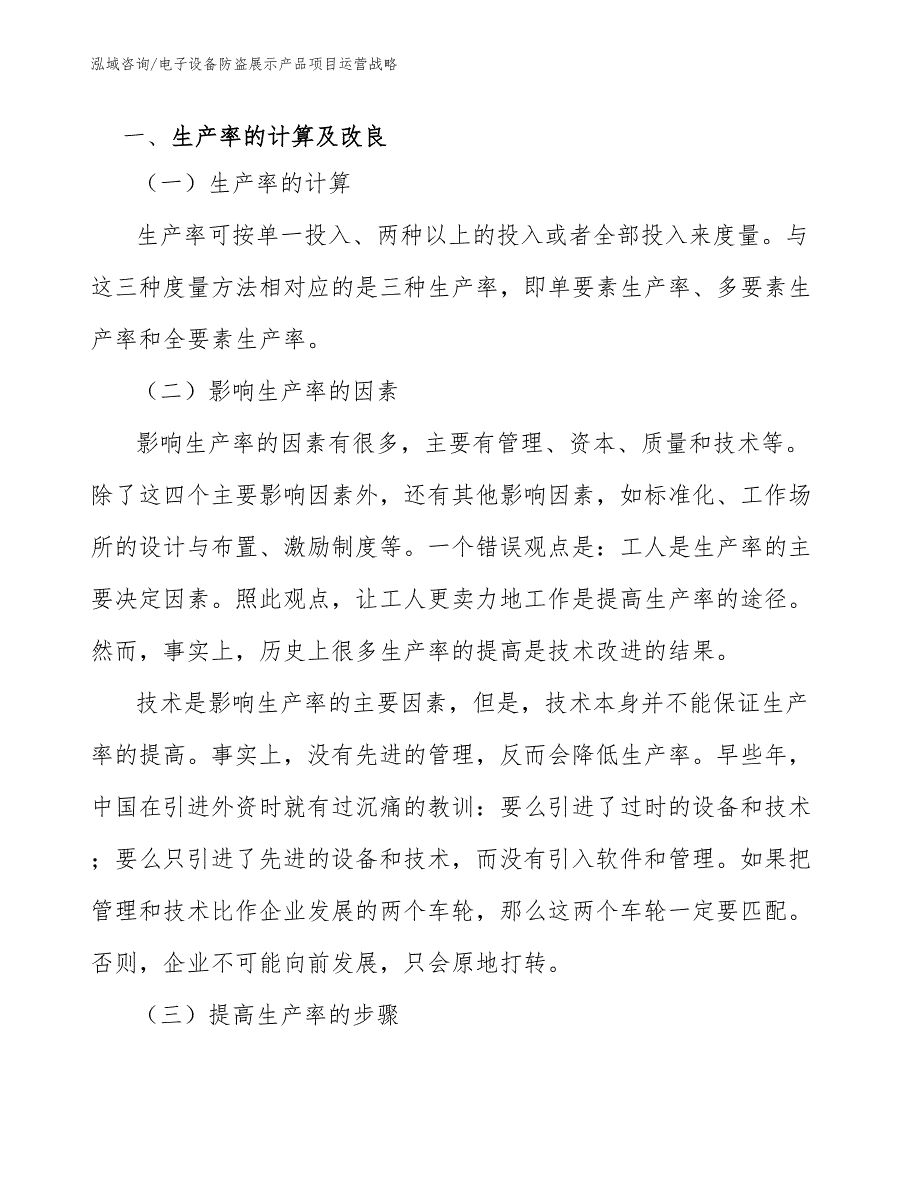 泓域咨询/电子设备防盗展示产品项目运营战略
一、生产率的计算及改良
（一）生产率的计算
生产率可按单一投入、两种以上的投入或者全部投入来度量。与
这三种度量方法相对应的是三种生产率，即单要素生产率、多要素生
产率和全要素生产率。
（二）影响生产率的因素
影响生产率的因素有很多，主要有管理、资本、质量和技术等。
除了这四个主要影响因素外，还有其他影响因素，如标准化、工作场
所的设计与布置、激励制度等。一个错误观点是：工人是生产率的主
要决定因素。照此观点，让工人更卖力地工作是提高生产率的途径。
然而，事实上，历史上很多生产率的提高是技术改进的结果。
技术是影响生产率的主要因素，但是，技术本身并不能保证生产
率的提高。事实上，没有先进的管理，反而会降低生产率。早些年，
中国在引进外资时就有过沉痛的教训：要么引进了过时的设备和技术
；要么只引进了先进的设备和技术，而没有引入软件和管理。如果把
管理和技术比作企业发展的两个车轮，那么这两个车轮一定要匹配。
否则，企业不可能向前发展，只会原地打转。
（三）提高生产率的步骤